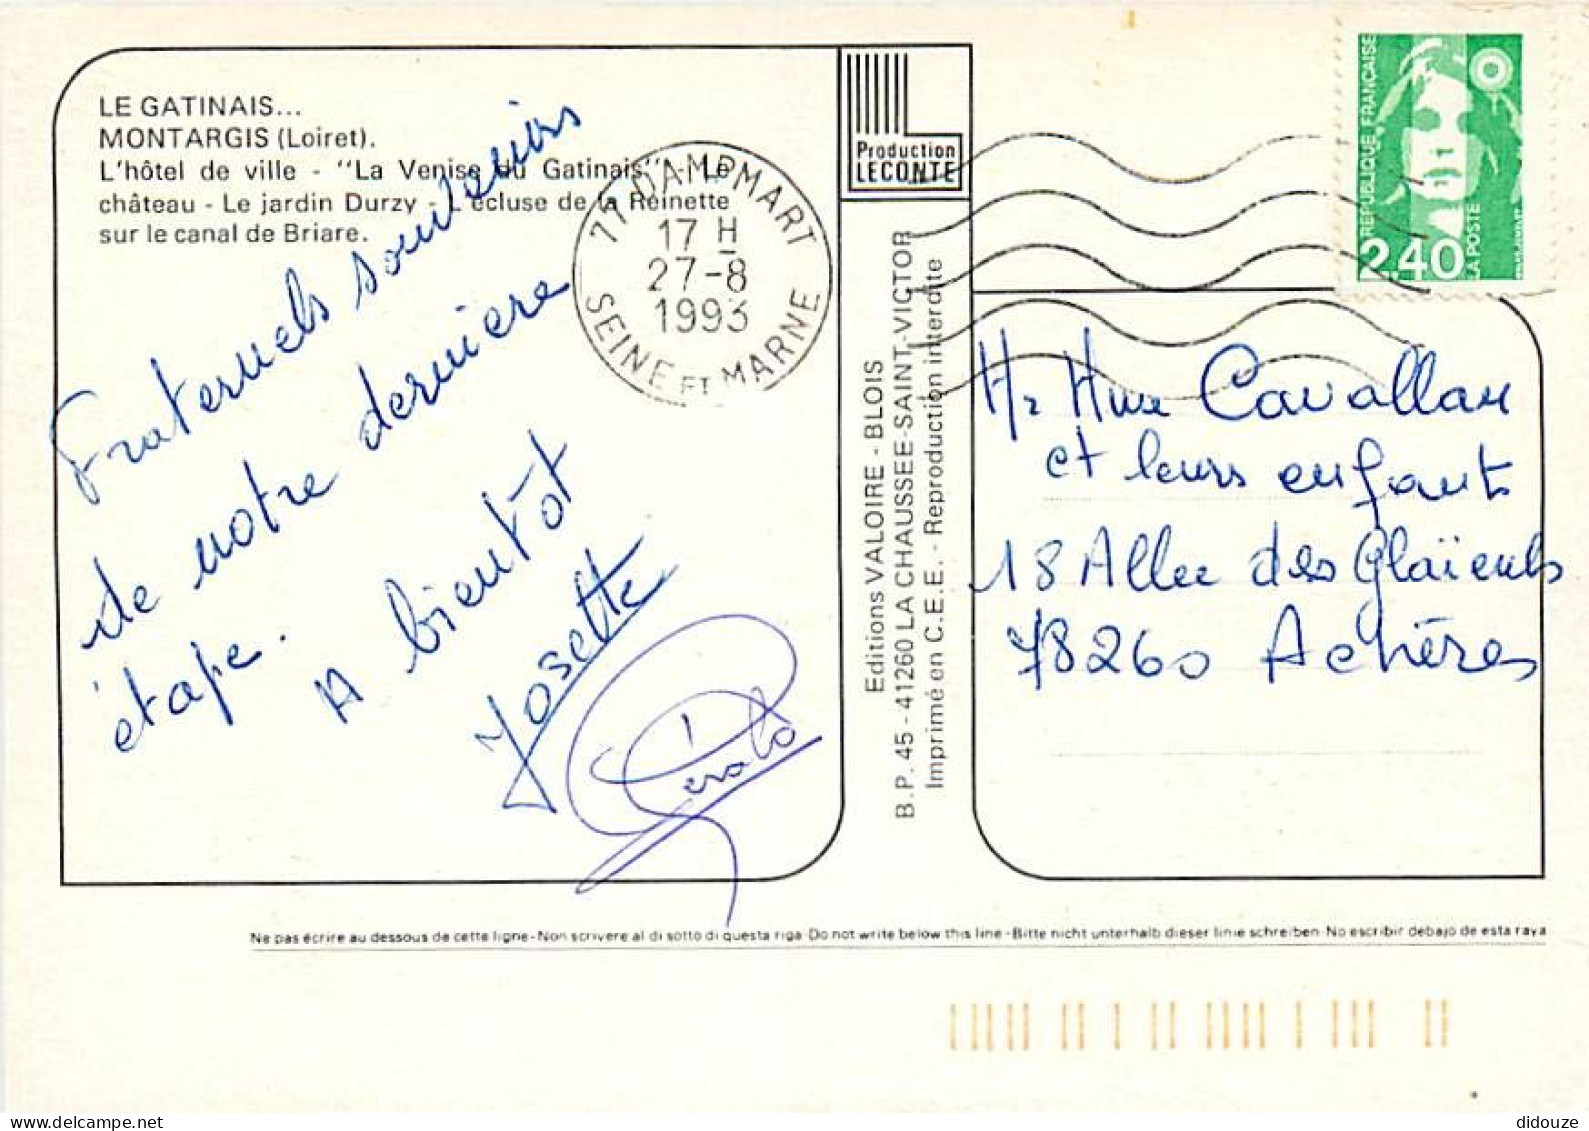 LE GATINAIS...
MONTARGIS (Loiret).
L'hôtel de ville - "La Venise du Gatinais" - Le
château - Le jardin Durzy - L'écluse de la Reinette
sur le canal de Briare.
Fraternels souvenirs
de notre derniere
étape.
A bientôt
Josette
77 DAMPMART
17 H
27-8
1993
SEINE ET MARNE
Production
LECONTE
Editions VALOIRE - BLOIS
B.P. 45 - 41260 LA CHAUSSEE-SAINT-VICTOR
Imprimé en C.E.E. - Reproduction interdite
REPUBLIQUE FRANÇAISE
2.40
LA POSTE
Mr Mme Cavallan
et leurs enfants
18 Allee des Glaïeuls
78260 Achères
Ne pas écrire au dessous de cette ligne - Non scrivere al di sotto di questa riga - Do not write below this line - Bitte nicht unterhalb dieser linie schreiben - No escribir debajo de esta raya
didouze